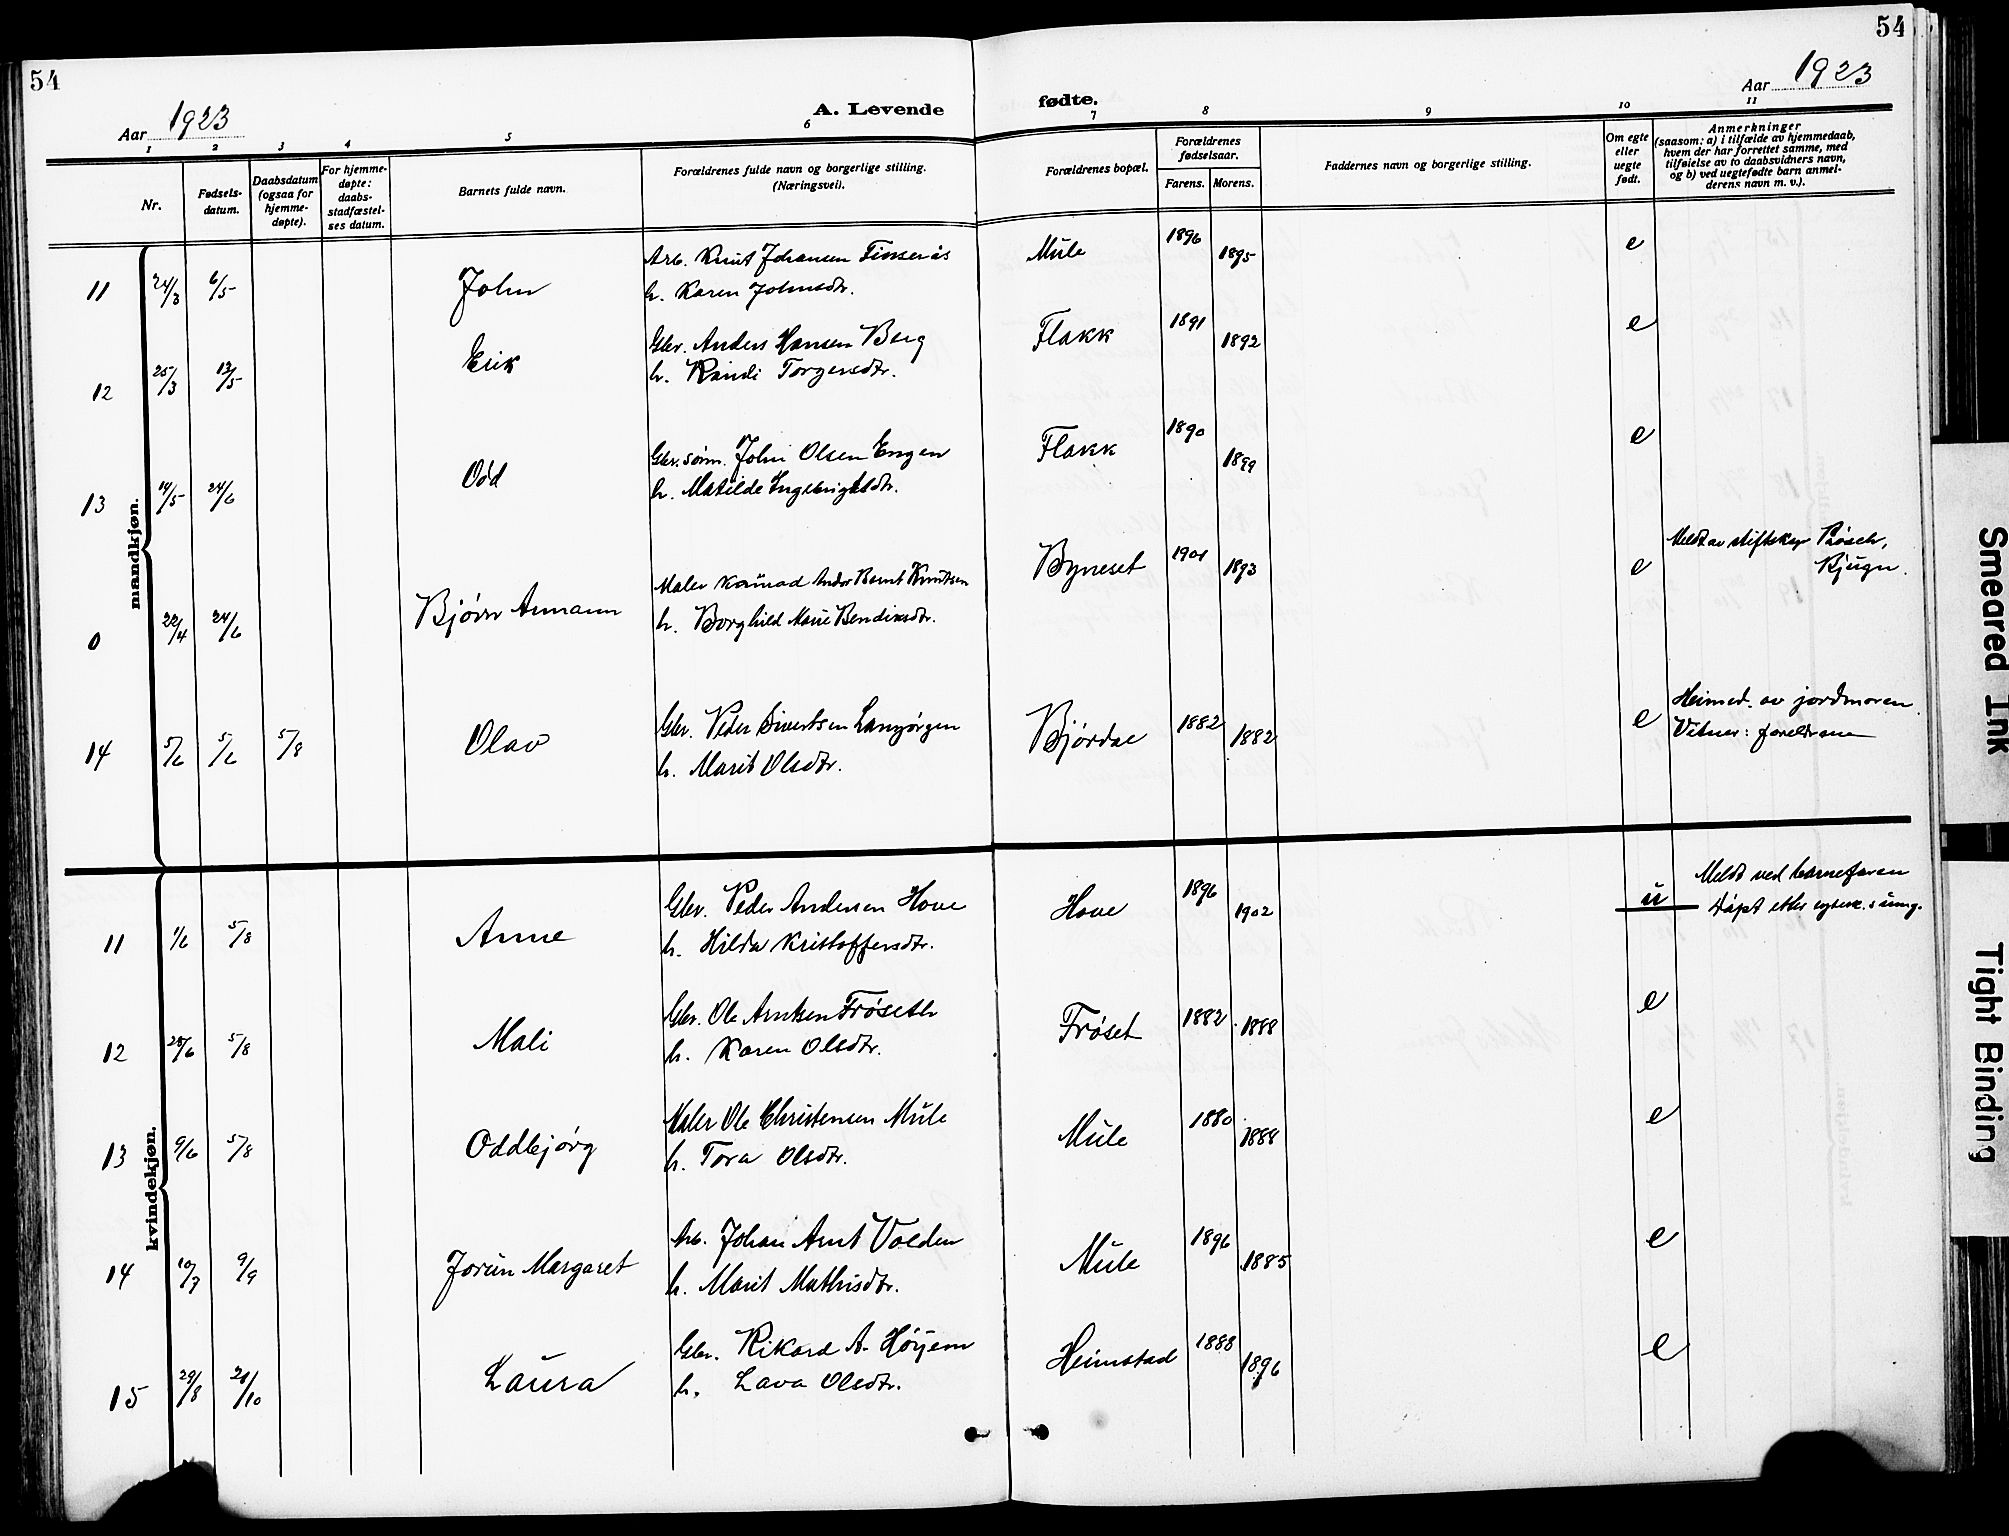 54
54
Aar 1923
A. Levende fødte.
Aar 1923
1 2 3 4 5 6 7 8 9 10 11
Nr.
Fødsels-
datum.
Daabsdatum
(ogsaa for
hjemme-
døpte).
For hjemme-
døpte:
daabs-
stadfæstel-
ses datum.
Barnets fulde navn.
Forældrenes fulde navn og borgerlige stilling.
(Næringsvei).
Forældrenes bopæl.
Forældrenes
fødselsaar.
Farens. Morens.
Faddernes navn og borgerlige stilling.
Om egte
eller
uegte
født.
Anmerkninger
(saasom: a) i tilfælde av hjemmedaab,
hvem der har forrettet samme, med
tilføielse av to daabsvidners navn,
og b) ved uegtefødte barn anmel-
derens navn m. v.).
mandkjøn.
11 24/3 6/5 John Arb. Knut Johansen Finserås Mule 1896 1895 e
h. Karen Johnsdtr.
12 25/3 13/5 Erik Gbr. Anders Hansen Berg Flakk 1891 1892 e
h. Randi Torgersdtr.
13 14/5 24/6 Odd Gbr.sønn. John Olsen Engen Flakk 1890 1899 e
h. Matilde Ingebrigtsdtr.
0 22/4 24/6 Bjørn Armann Maler Konrad Andor Bernt Knutsen Byneset 1901 1893 e Meldt av stiftskap.
h. Borghild Marie Bendiksdtr. Bjugn.
14 5/6 5/6 5/8 Olav Gbr. Peder Sivertsen Langørgen Bjørdal 1882 1882 e Heimed. av jordmoren.
h. Marit Olsdtr. Vitner: foreldrene
kvindekjøn.
11 1/6 5/8 Anne Gbr. Peder Andersen Hove Hove 1896 1902 u Meldt ved barnefaren
h. Hilda Kristoffersdtr. Døpt etter
12 28/6 5/8 Mali Gbr. Ole Arntsen Frøseth Frøset 1882 1888 e
h. Karen Olsdtr.
13 9/6 5/8 Oddbjørg Maler Ole Christensen Mule Mule 1880 1888 e
h. Tora Olsdtr.
14 10/7 9/9 Jorun Margaret Arb. Johan Arnt Volden Mule 1896 1885 e
h. Marit Mathisdtr.
15 29/8 21/10 Laura Gbr. Rikard A. Høyem Heimstad 1888 1896 e
h. Lava Olsdtr.
Smeared Ink
Tight Binding